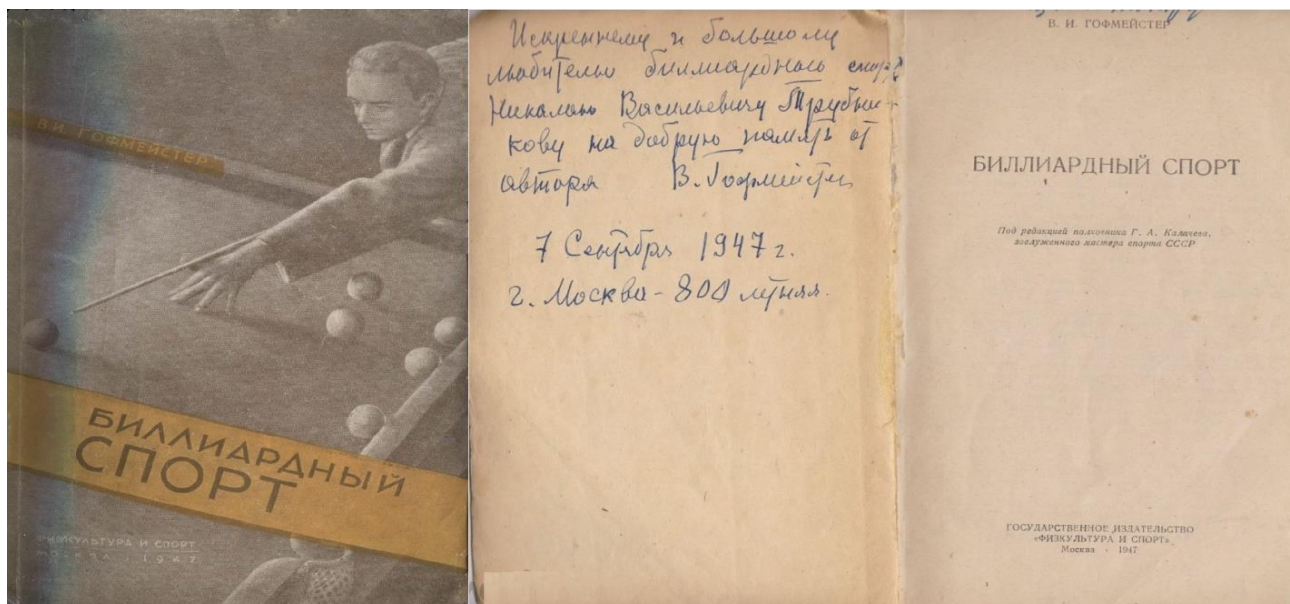 В. И. ГОФМЕЙСТЕР
БИЛЛИАРДНЫЙ
СПОРТ
ФИЗКУЛЬТУРА И СПОРТ
МОСКВА 1947
Искреннему и большому
любителю биллиардного спорта
Николаю Васильевичу Трубни-
кову на добрую память от
автора В. Гофмейстер
7 Сентября 1947 г.
г. Москва - 800 летняя.
В. И. ГОФМЕЙСТЕР
БИЛЛИАРДНЫЙ СПОРТ
Под редакцией полковника Г. А. Калачева,
заслуженного мастера спорта СССР
ГОСУДАРСТВЕННОЕ ИЗДАТЕЛЬСТВО
«ФИЗКУЛЬТУРА И СПОРТ»
Москва • 1947